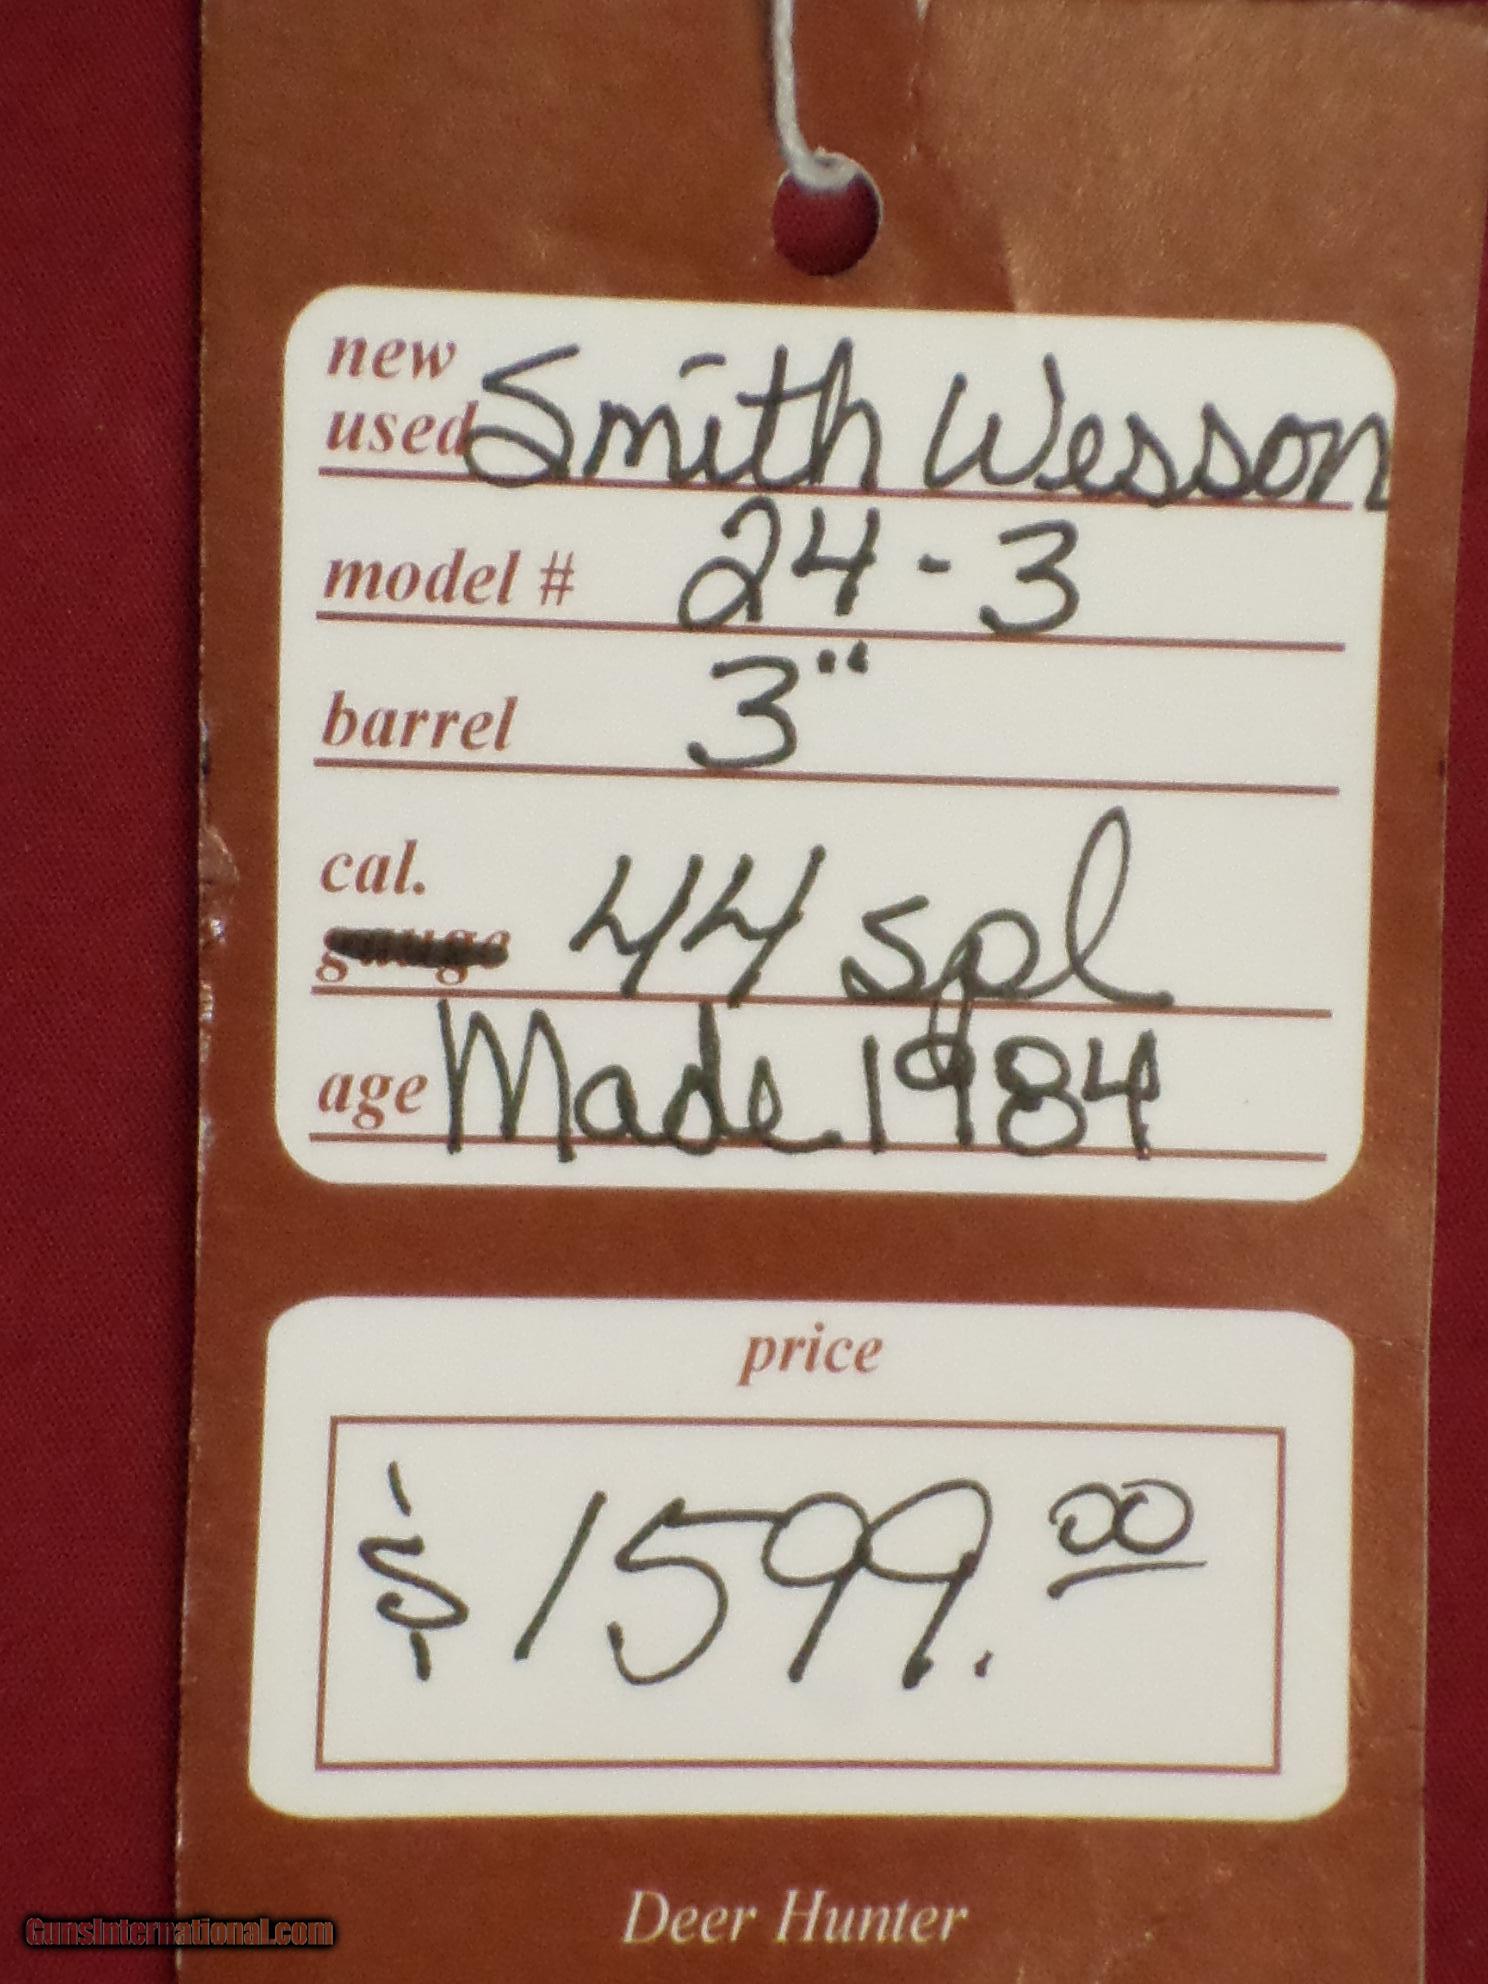 new
used Smith Wesson
model # 24-3
barrel 3"
cal.
gauge 44 spl
age Made 1984
price
$1599.00
Deer Hunter
GunsInternational.com